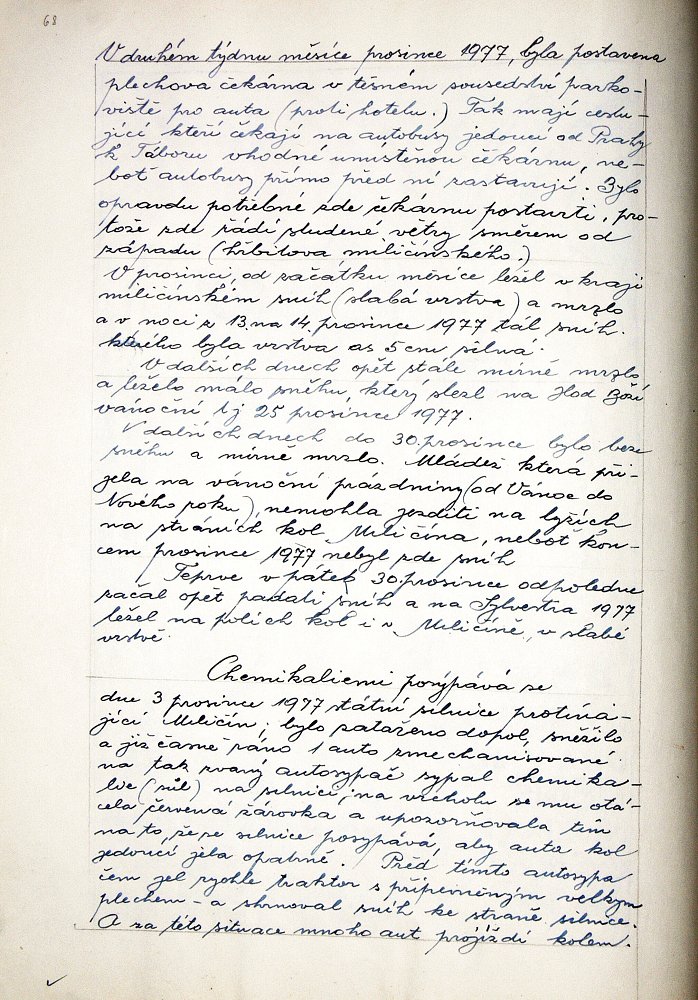 68
V druhém týdnu měsíce prosince 1977, byla postavena
plechova čekárna v těsném sousedství parko-
viště pro auta (proti hotelu.) Tak mají cestu-
jící kteří čekají na autobusy jedoucí od Prahy
k Táboru vhodně umístěnou čekárnu, ne-
boť autobusy přímo před ní zastavují. Bylo
opravdu potřebné zde čekárnu postaviti, pro-
tože zde řádí studené větry směrem od
západu (hřbitova miličínského.)
V prosinci, od začátku měsíce ležel v kraji
miličínském sníh (slabá vrstva) a mrzlo
a v noci z 13. na 14. prosince 1977 tál sníh.
kterého byla vrstva as 5 cm silná.
V dalších dnech opět stále mírně mrzlo
a leželo málo sněhu, který slezl na Hod Boží
vánoční tj 25 prosince 1977.
V dalších dnech do 30. prosince bylo beze
sněhu a mírně mrzlo. Mládež která při-
jela na vánoční prázdniny (od Vánoc do
Nového roku), nemohla jezditi na lyžích
na stráních kol Miličína, neboť kon-
cem prosince 1977 nebyl zde sníh
Teprve v pátek 30. prosince odpoledne
začal opět padati sníh a na Sylvestra 1977
ležel na polích kol i v Miličíně, v slabé
vrstvě.
Chemikaliemi posýpává se
dne 3 prosince 1977 státní silnice protína-
jící Miličín; bylo zataženo dopol, sněžilo
a již časně ráno 1 auto zmechanisované
na tak zvaný autosypač sypal chemika-
lie (sůl) na silnici, na vrcholu se mu otá-
čela červená žárovka a upozorňovala tím
na to, že se silnice posypává, aby auta kol
jedoucí jela opatrně. Před tímto autosypa
čem jel rychle traktor s připevněným velkým
plechem - a shrnoval sníh ke straně silnice.
A za této situace mnoho aut projíždí kolem.